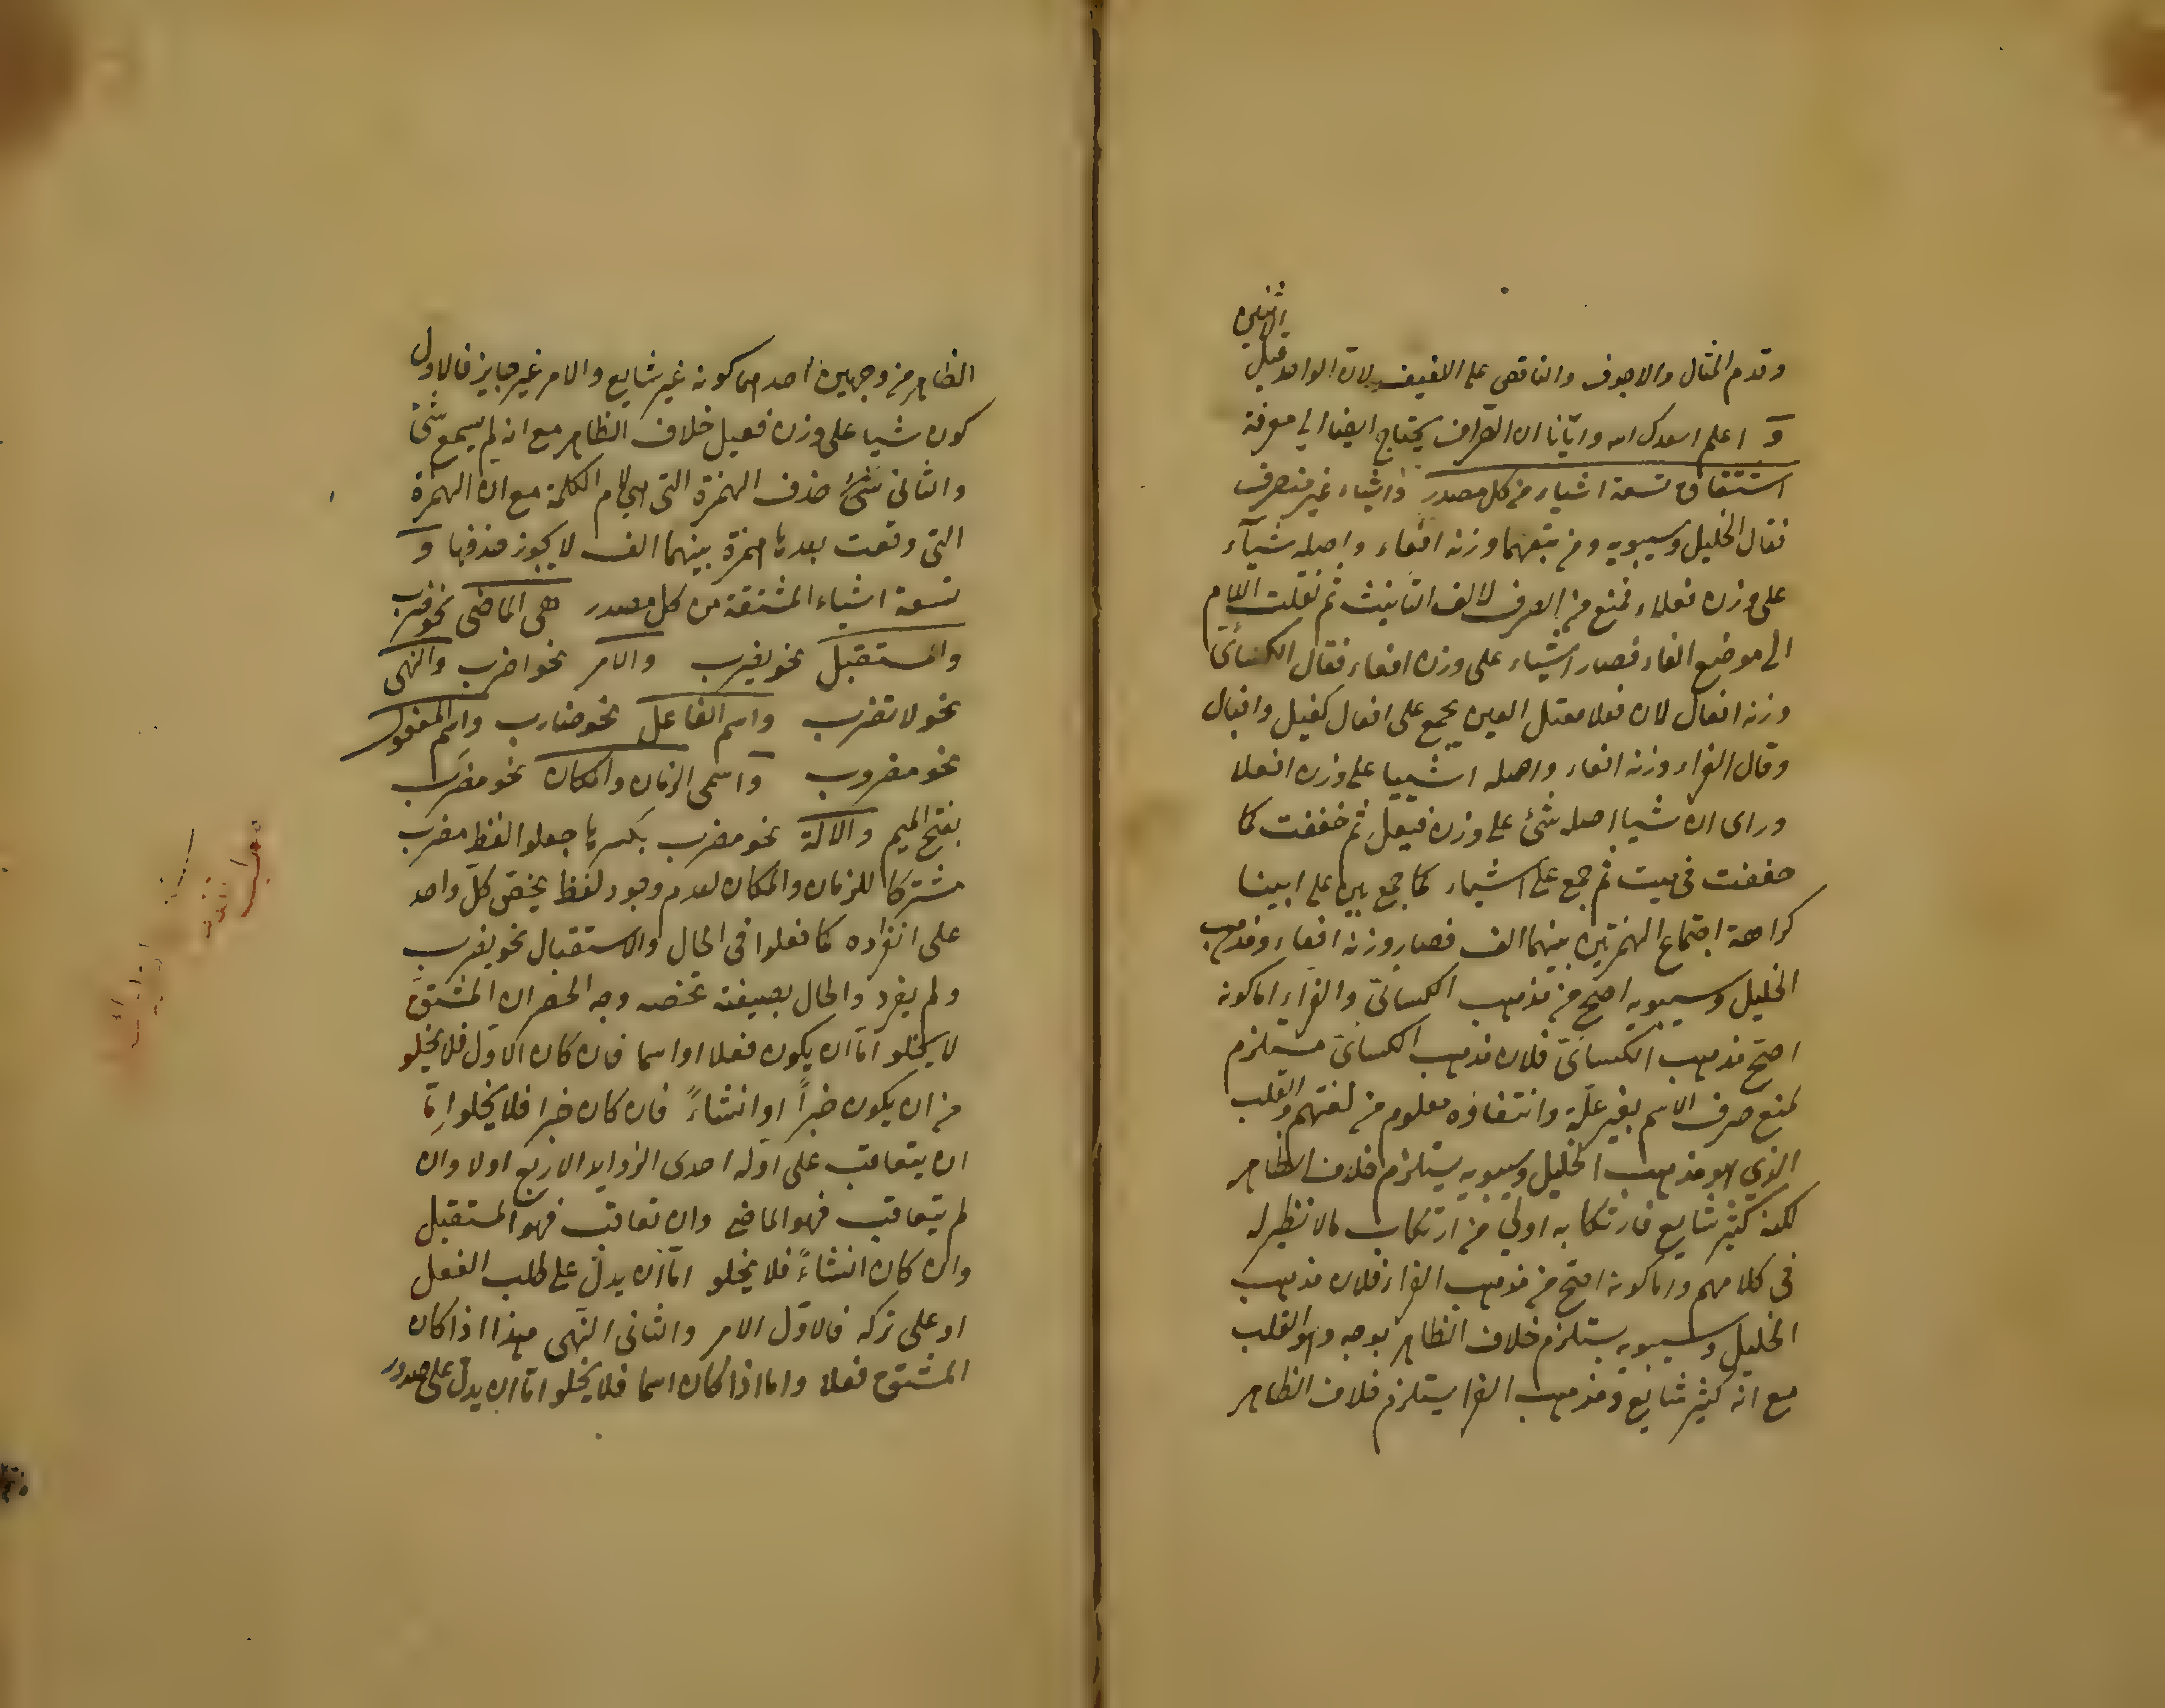 وقدم المثال والاجوف والناقص على اللفيف لان الواحد قبل
الاثنين
و اعلم اسعدك الله وايّانا ان الصّراف يحتاج ايضا الى معرفة
اشتقاق تسعة اشياء من كل مصدر واشياء غير منصرف
فقال الخليل وسيبويه ومن تبعهما وزنه افعاء واصله شيآء
على وزن فعلاء فمنع من الصرف لالف التانيث ثم نقلت اللام
الى موضع الفاء فصار اشياء على وزن افعاء فقال الكسائىّ
وزنه افعال لان فعلا معتل العين يجمع على افعال كفيل وافيال
وقال الفراء وزنه افعاء واصله اشييا على وزن افعلا
وراى ان شيا اصله شئ على وزن فيعل ثم خففت كما
خففت فى ميت ثم جمع على اشياء كما جمع بين على ابينا
كراهة اجتماع الهمزتين بينهما الف فصار وزنه افعاء ومذهب
الخليل وسيبويه اصحّ من مذهب الكسائىّ والفراء اما كونه
اصحّ مذهب الكسائىّ فلان مذهب الكسائىّ مستلزم
لمنع صرف الاسم بغير علّة وانتفاؤه معلوم من لغتهم والقلب
الذي هو مذهب الخليل وسيبويه يستلزم خلاف الظاهر
لكنه كثير شايع فارتكابه اولى من ارتكاب مالا نظير له
فى كلامهم واما كونه اصحّ من مذهب الفراء فلان مذهب
الخليل وسيبويه يستلزم خلاف الظاهر بوجه وهو القلب
مع انه كثير شايع ومذهب الفرا يستلزم خلاف الظاهر
الظاهر من وجهين احدهما كونه غير شايع والامر غير جايز فالاول
كون شيا على وزن فعيل خلاف الظاهر مع انه لم يسمع شئ
والثانى شئ حذف الهمزة التى هى لام الكلمة مع ان الهمزة
التى وقعت بعدها همزة بينهما الف لا يجوز حذفها و
تسعة اشياء المشتقة من كل مصدر هى الماضى نحو ضرب
والمستقبل نحو يضرب والامر نحو اضرب والنهى
نحو لا تضرب واسم الفاعل نحو ضارب واسم المفعول
نحو مضروب واسمى الزمان والمكان نحو مضرَب
بفتح الميم والالة نحو مضرب بكسرها جعلوا لفظ مضرب
مشتركا للزمان والمكان لعدم وجود لفظ يختصّ كلّ واحد
على انفراده كما فعلوا فى الحال والاستقبال نحو يضرب
ولم يفرد والحال بصيغة تخصه وجه الحصر ان المشتق
لا يخلو امّا ان يكون فعلا او اسما فان كان الاوّل فلا يخلو
من ان يكون خبراً او انشاءً فان كان خبرا فلا يخلو امّا
ان يتعاقب على اوله احدى الزوايد الاربع اولا وان
لم يتعاقب فهو الماضى وان تعاقب فهو المستقبل
وان كان انشاءً فلا يخلو امّا ان يدلّ على طلب الفعل
او على تركه فالاوّل الامر والثانى النهى هذا اذا كان
المشتق فعلا واما اذا كان اسما فلا يخلو امّا ان يدلّ على صدور